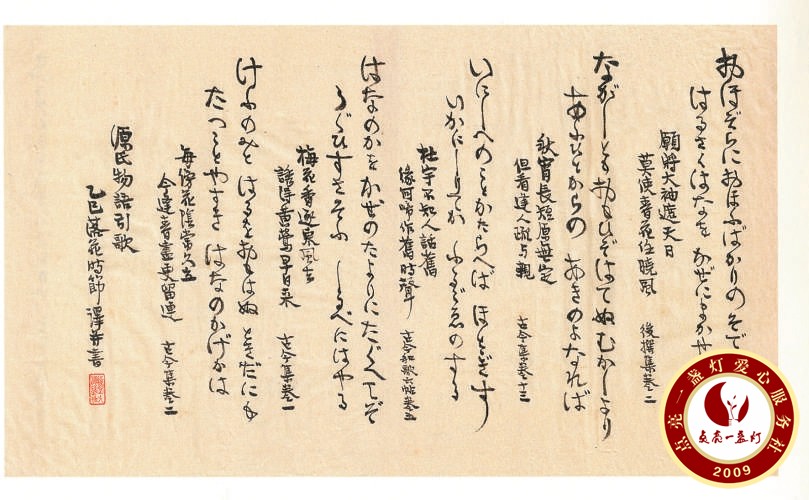 おほぞらにおほふばかりのそで
はるさくはなを かぜにまかせ
願將大袖遮天日
莫使春花任曉風 後撰集卷二
ながしとも おもひぞはてぬ むかしより
あふひとからの あきのよなれば
秋宵長短原無定
但看逢人疏与親 古今集卷十三
いにしへのことかたらへば ほととぎす
いかにしりてか ふるごゑのする
杜宇不知人話舊
緣何啼作舊時聲 古今和歌六帖卷五
はなのかをかぜのたよりにたぐへてぞ
うぐひすさそふ しるべにはやる
梅花香逐東風去
誘得黃鶯早日来 古今集卷一
けふのみと はるをおもはぬ ときだにも
たつことやすき はなのかげかは
每傍花陰常久立
今逢春盡更留連 古今集卷二
源氏物語引歌
乙巳落花時節 書
点亮一盏灯爱心服务社
点亮一盏灯
2009